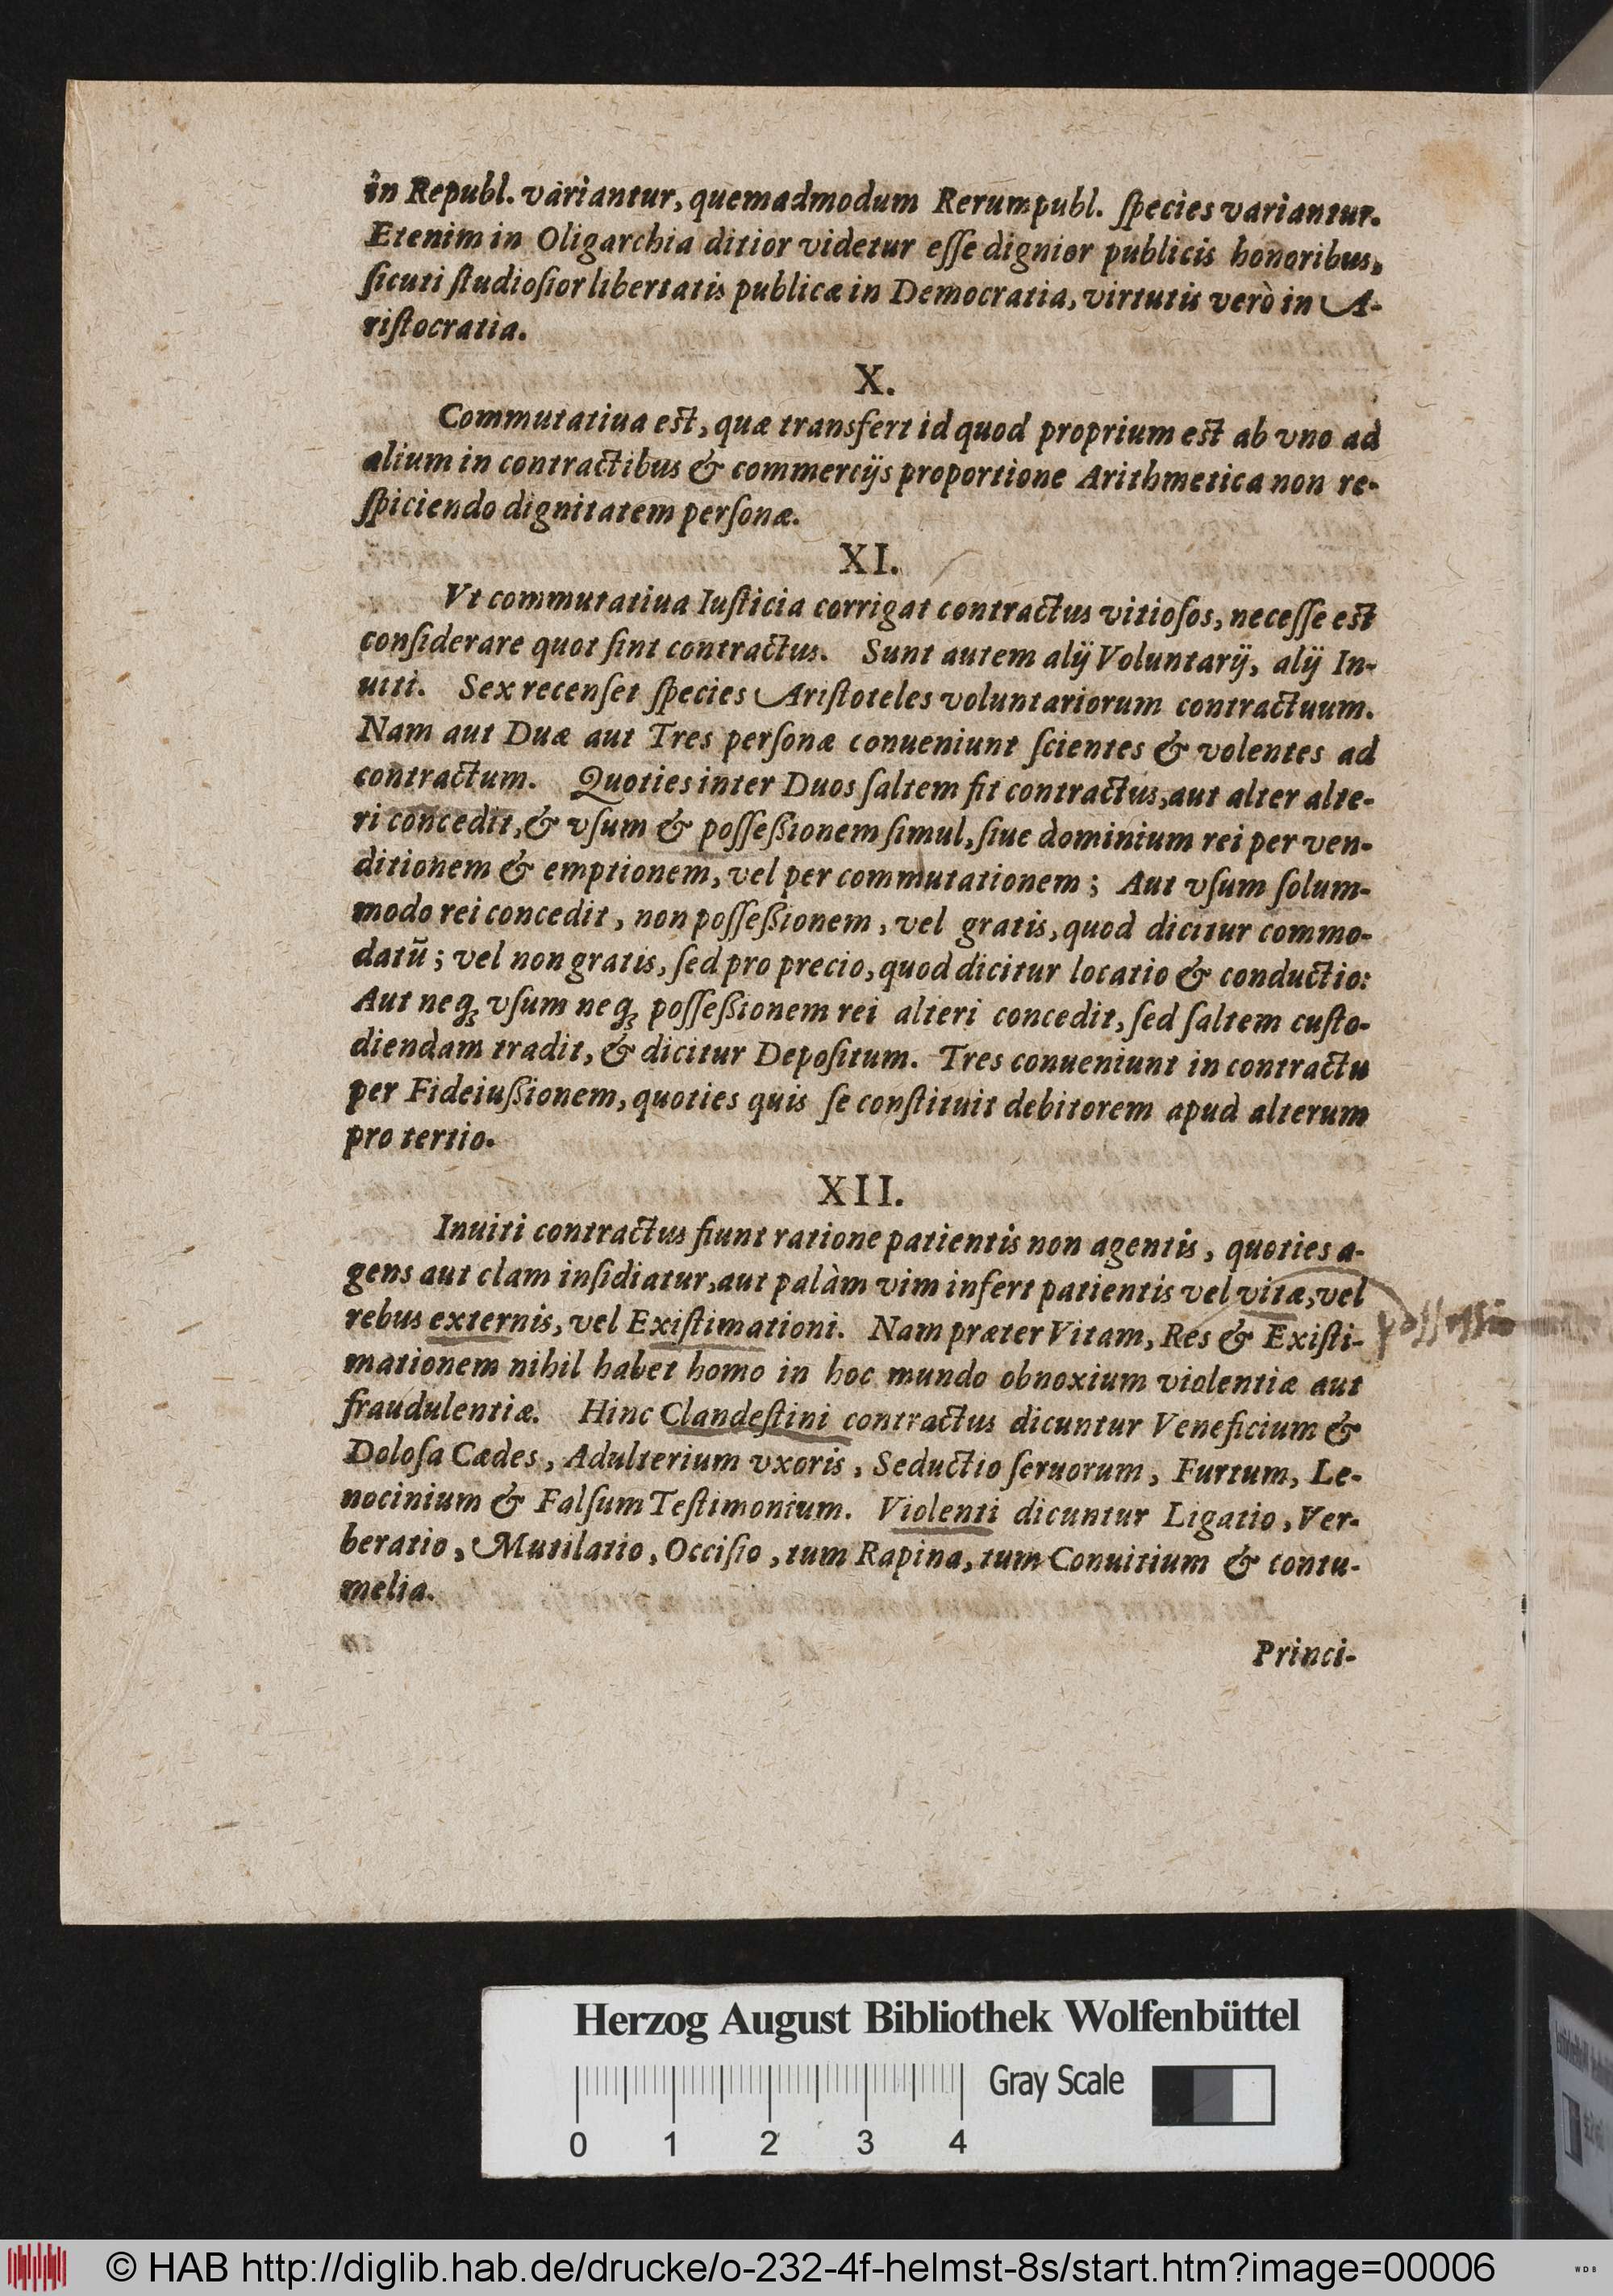 in Republ. variantur, quemadmodum Rerumpubl. ſpecies variantur.
Etenim in Oligarchia ditior videtur eſſe dignior publicis honoribus,
ſicuti ſtudioſior libertatis publicæ in Democratia, virtutis verò in A-
riſtocratia.
X.
Commutatiua eſt, quæ transfert id quod proprium eſt ab vno ad
alium in contractibus & commercijs proportione Arithmetica non re-
ſpiciendo dignitatem perſonæ.
XI.
Vt commutatiua Iuſticia corrigat contractus vitioſos, neceſſe eſt
conſiderare quot ſint contractus. Sunt autem alij Voluntarij, alij In-
uiti. Sex recenſet ſpecies Ariſtoteles voluntariorum contractuum.
Nam aut Duæ aut Tres perſonæ conueniunt ſcientes & volentes ad
contractum. Quoties inter Duos ſaltem fit contractus, aut alter alte-
ri concedit, & vſum & poſſeßionem ſimul, ſiue dominium rei per ven-
ditionem & emptionem, vel per commutationem; Aut vſum ſolum-
modo rei concedit, non poſſeßionem, vel gratis, quod dicitur commo-
datũ; vel non gratis, ſed pro precio, quod dicitur locatio & conductio:
Aut neq; vſum neq; poſſeßionem rei alteri concedit, ſed ſaltem cuſto-
diendam tradit, & dicitur Depoſitum. Tres conueniunt in contractu
per Fideiußionem, quoties quis ſe conſtituit debitorem apud alterum
pro tertio.
XII.
Inuiti contractus fiunt ratione patientis non agentis, quoties a-
gens aut clam inſidiatur, aut palàm vim infert patientis vel vitæ, vel
rebus externis, vel Exiſtimationi. Nam præter Vitam, Res & Exiſti-
mationem nihil habet homo in hoc mundo obnoxium violentiæ aut
fraudulentiæ. Hinc Clandeſtini contractus dicuntur Veneficium &
Doloſa Cædes, Adulterium vxoris, Seductio ſeruorum, Furtum, Le-
nocinium & Falſum Teſtimonium. Violenti dicuntur Ligatio, Ver-
beratio, Mutilatio, Occiſio, tum Rapina, tum Conuitium & contu-
melia.
Princi-
Herzog August Bibliothek Wolfenbüttel
Gray Scale
0 1 2 3 4
© HAB http://diglib.hab.de/drucke/o-232-4f-helmst-8s/start.htm?image=00006
WDB